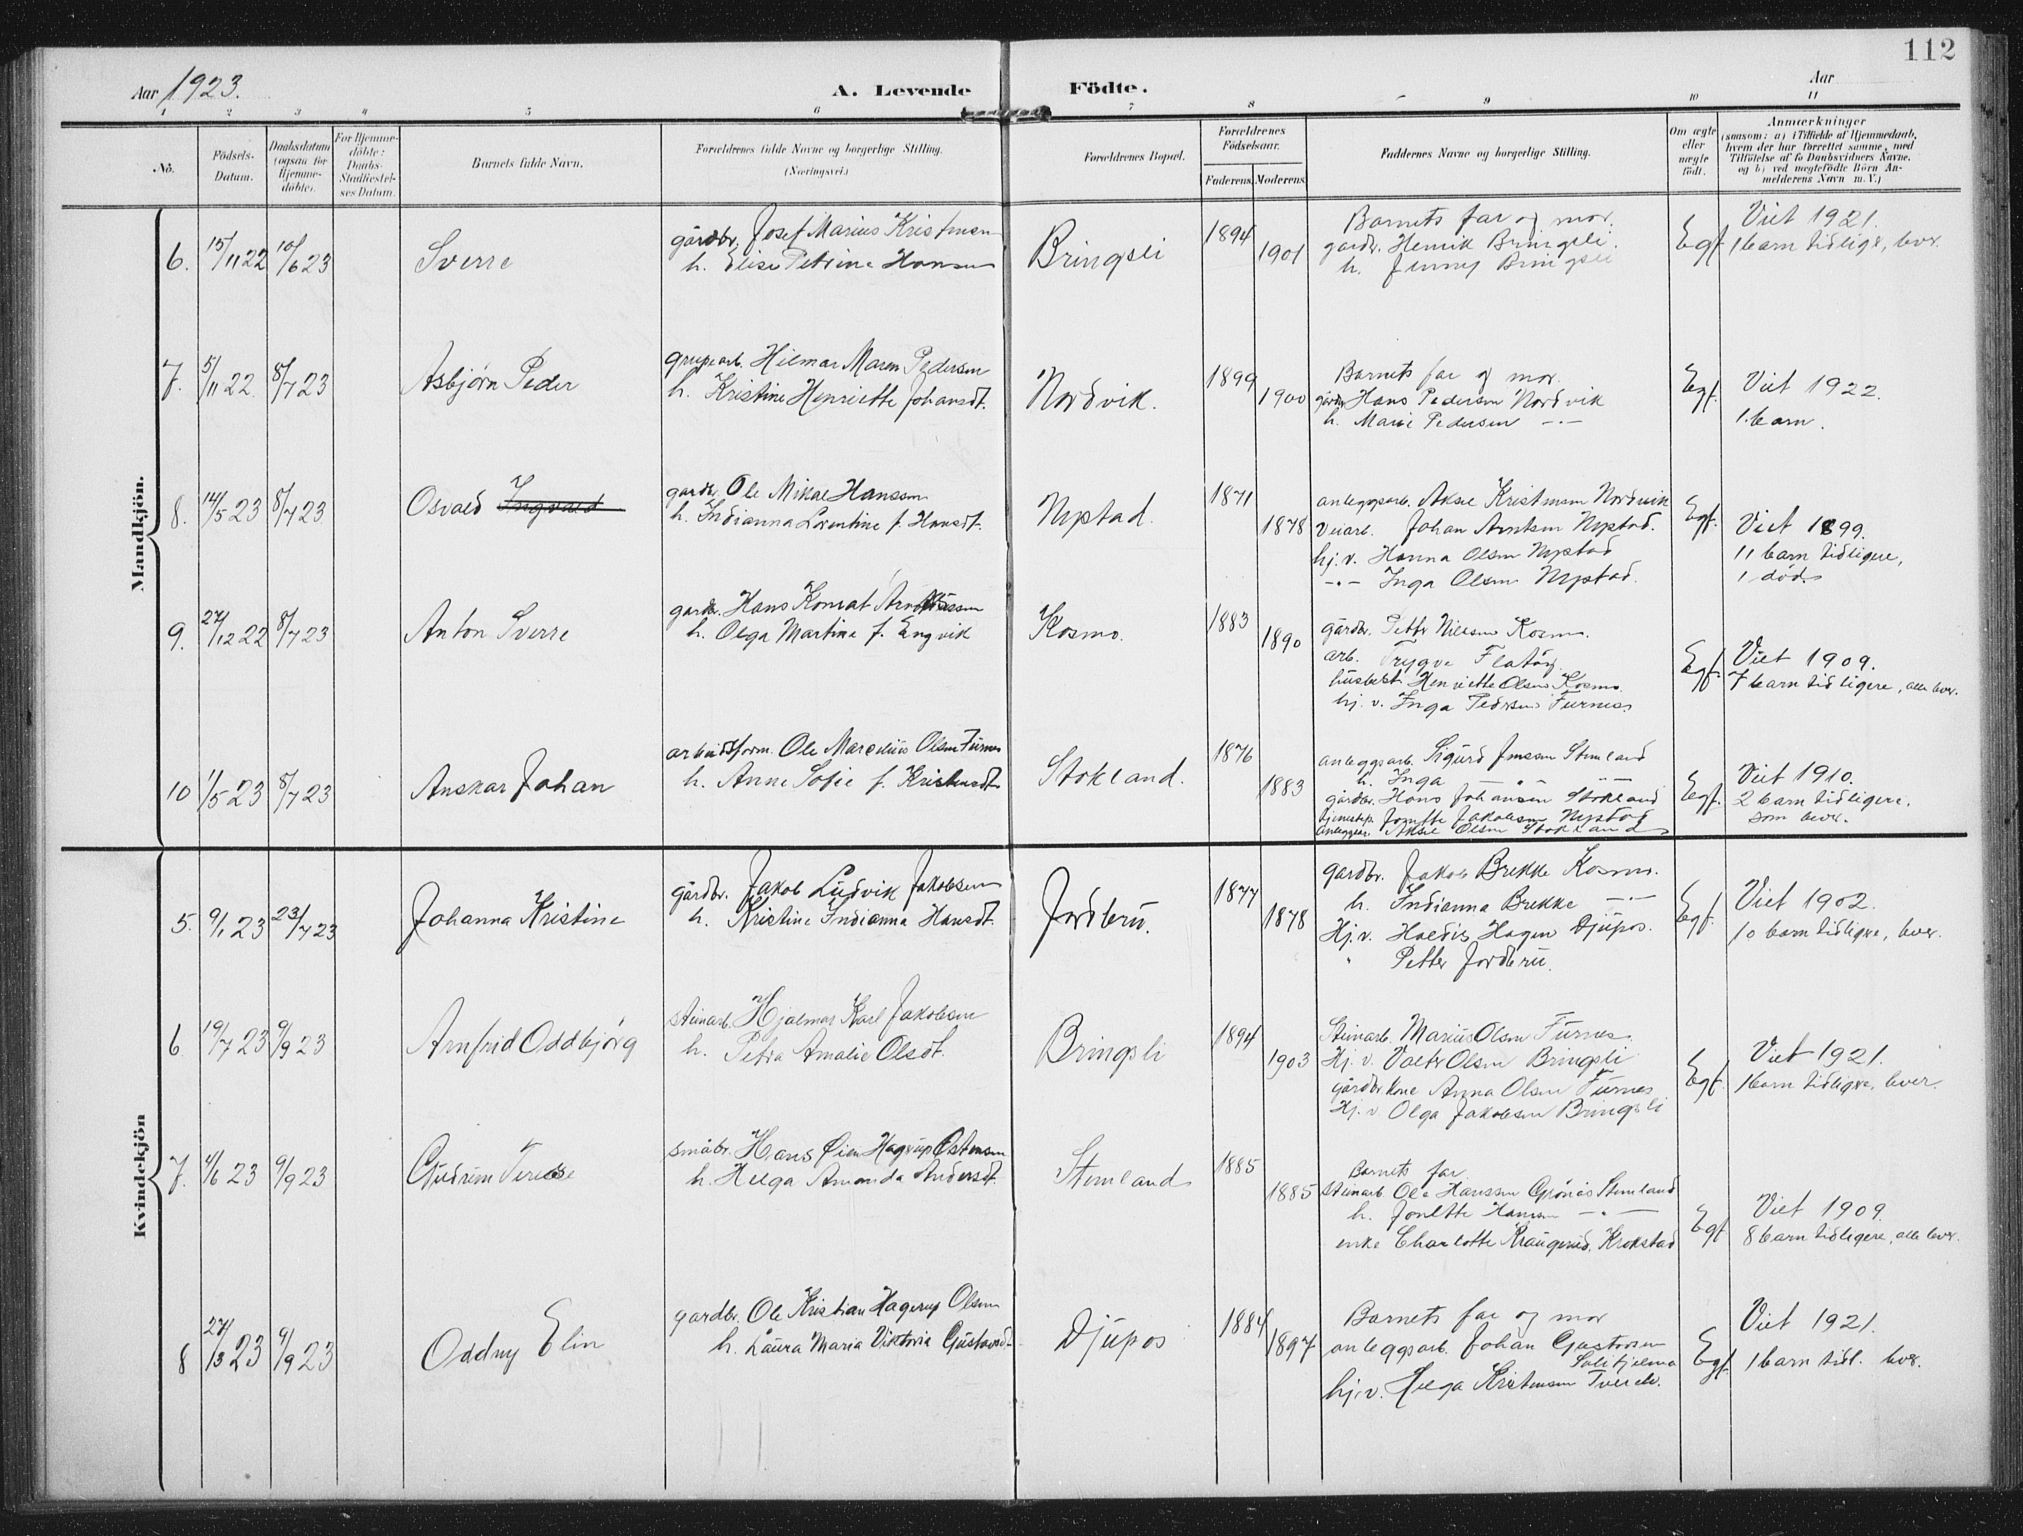 112
Aar 1923.
A. Levende Födte.
Aar
1 2 3 4 5 6 7 8 9 10 11
No.
Födsels-Datum.
Daabsdatum (ogsaa for Hjemme-döbte).
For Hjemme-döbte: Daabs-Stadfæstel-ses Datum.
Barnets fulde Navn.
Forældrenes fulde Navne og borgerlige Stilling. (Næringsvei.)
Forældrenes Bopæl.
Forældrenes Födselsaar.
Faderens. Moderens.
Faddernes Navne og borgerlige Stilling.
Om ægte eller uægte födt.
Anmærkninger
(saasom: a) i Tilfælde af Hjemmedaab, hvem der har forrettet samme, med Tilföielse af to Daabsvidners Navne, og b) ved uægtefödte Börn An-melderens Navn m. V.)
Mandkjön.
6. 15/11 22 10/6 23 Sverre
gårdbr. Josef Marius Kristensen
h. Elise Petrine Hansen
Bringsli 1894 1901
Barnets far og mor.
gardbr. Henrik Bringsli.
h. Jenny Bringsli
Egf.
Viet 1921.
1 barn tidlige, lever.
7. 5/11 22. 8/7 23 Asbjørn Peder
grubearb. Hilmar Maren Pedersen
h. Kristine Henriette Johansdt.
Nordvik. 1899 1900
Barnets far og mor.
gårdbr. Hans Pedersen Nordvik
h. Marie Pedersen -"-
Egf.
Viet 1922.
1 barn.
8. 14/5 23 8/7 23 Osvald Ingvald
gardbr. Ole Mikal Hanssen
h. Indianna Lorentine f. Hansdt.
Nystad. 1871 1878
anleggsarb. Aksel Kristensen Nordvik
Veiarb. Johan Arntsen Nystad.
hj. v. Hanna Olsen Nystad
-"- Inga Olsen Nystad.
Egf.
Viet 1899.
11 barn tidligere,
1 død
9. 27/12 22 8/7 23 Anton Sverre
gardbr. Hans Konrat
h. Olga Martine f. Engvik
Kosmo. 1883 1890
gårdbr. Petter Nilssen Kosmo.
arb. Trygve
Henriette Olsen Kosmo.
hj. v. Inga Pedersen Furnes
Egf.
Viet 1909.
7 barn tidligere, alle lever.
10 1/5 23 8/7 23 Anskar Johan
arbeidsform. Ole Marselius Olsen Furnes
h. Anne Sofie f. Kristensdt.
Stokland. 1876 1883
anleggsarb. Sigurd Jenssen Stemland
h. Inga -"- -"-
gårdbr. Hans Johansen Stokland
tjenestep. Jonette Jakobsen Nystad
anleggsarb. Aksel Olsen Stokland
Egf.
Viet 1910.
2 barn tidligere,
som lever.
Kvindekjön
5. 9/1 23 23/7 23 Johanna Kristine
gårdbr. Jakob Ludvik Jakobsen
h. Kristine Indianna Hansdt.
Jordbru. 1877 1878
gardbr. Jakob Brekke Kosmo.
h. Indianna Brekke -"-
Hj. v. Haldis Hagen Djupos.
" Petter Jordbru.
Egf.
Viet 1902.
10 barn tidligere, lever.
6 19/7 23 9/9 23 Arnfrid Oddbjørg
Steinarb. Hjalmar Karl Jakobsen
h. Petra Amalie Olsdt.
Bringsli 1894 1903
Steinarb. Marius Olsen Furnes
Hj. v. Valter Olsen Bringsli
gårdbr kone Anna Olsen Furnes
Hj. v. Olga Jakobsen Bringsli
Egf.
Viet 1921.
1 barn tidligere, lever.
7. 4/6 23 9/9 23 Gudrun Terese
småbr. Hans Øien Hagerup Østensen
h. Helga Amanda Andersdt.
Stemland 1885 1885
Barnets far
Steinarb Ole Hanssen Grønås Stemland
h. Jonette Hansen -"-
enke Charlotte Krokstad
Egf
Viet 1909.
8 barn tidligere, alle lever.
8 27/3 23 9/9 23 Oddny Elin
gardbr. Ole Kristian Hagerup Olsen
h. Laura Maria Viktoria Gustavsdt.
Djupos 1884 1897
Barnets far og mor
anleggsarb. Johan Gustavsen
Sulitjelma
hj. v. Helga Kristensen
Egf.
Viet 1921.
1 barn tidl. lever.